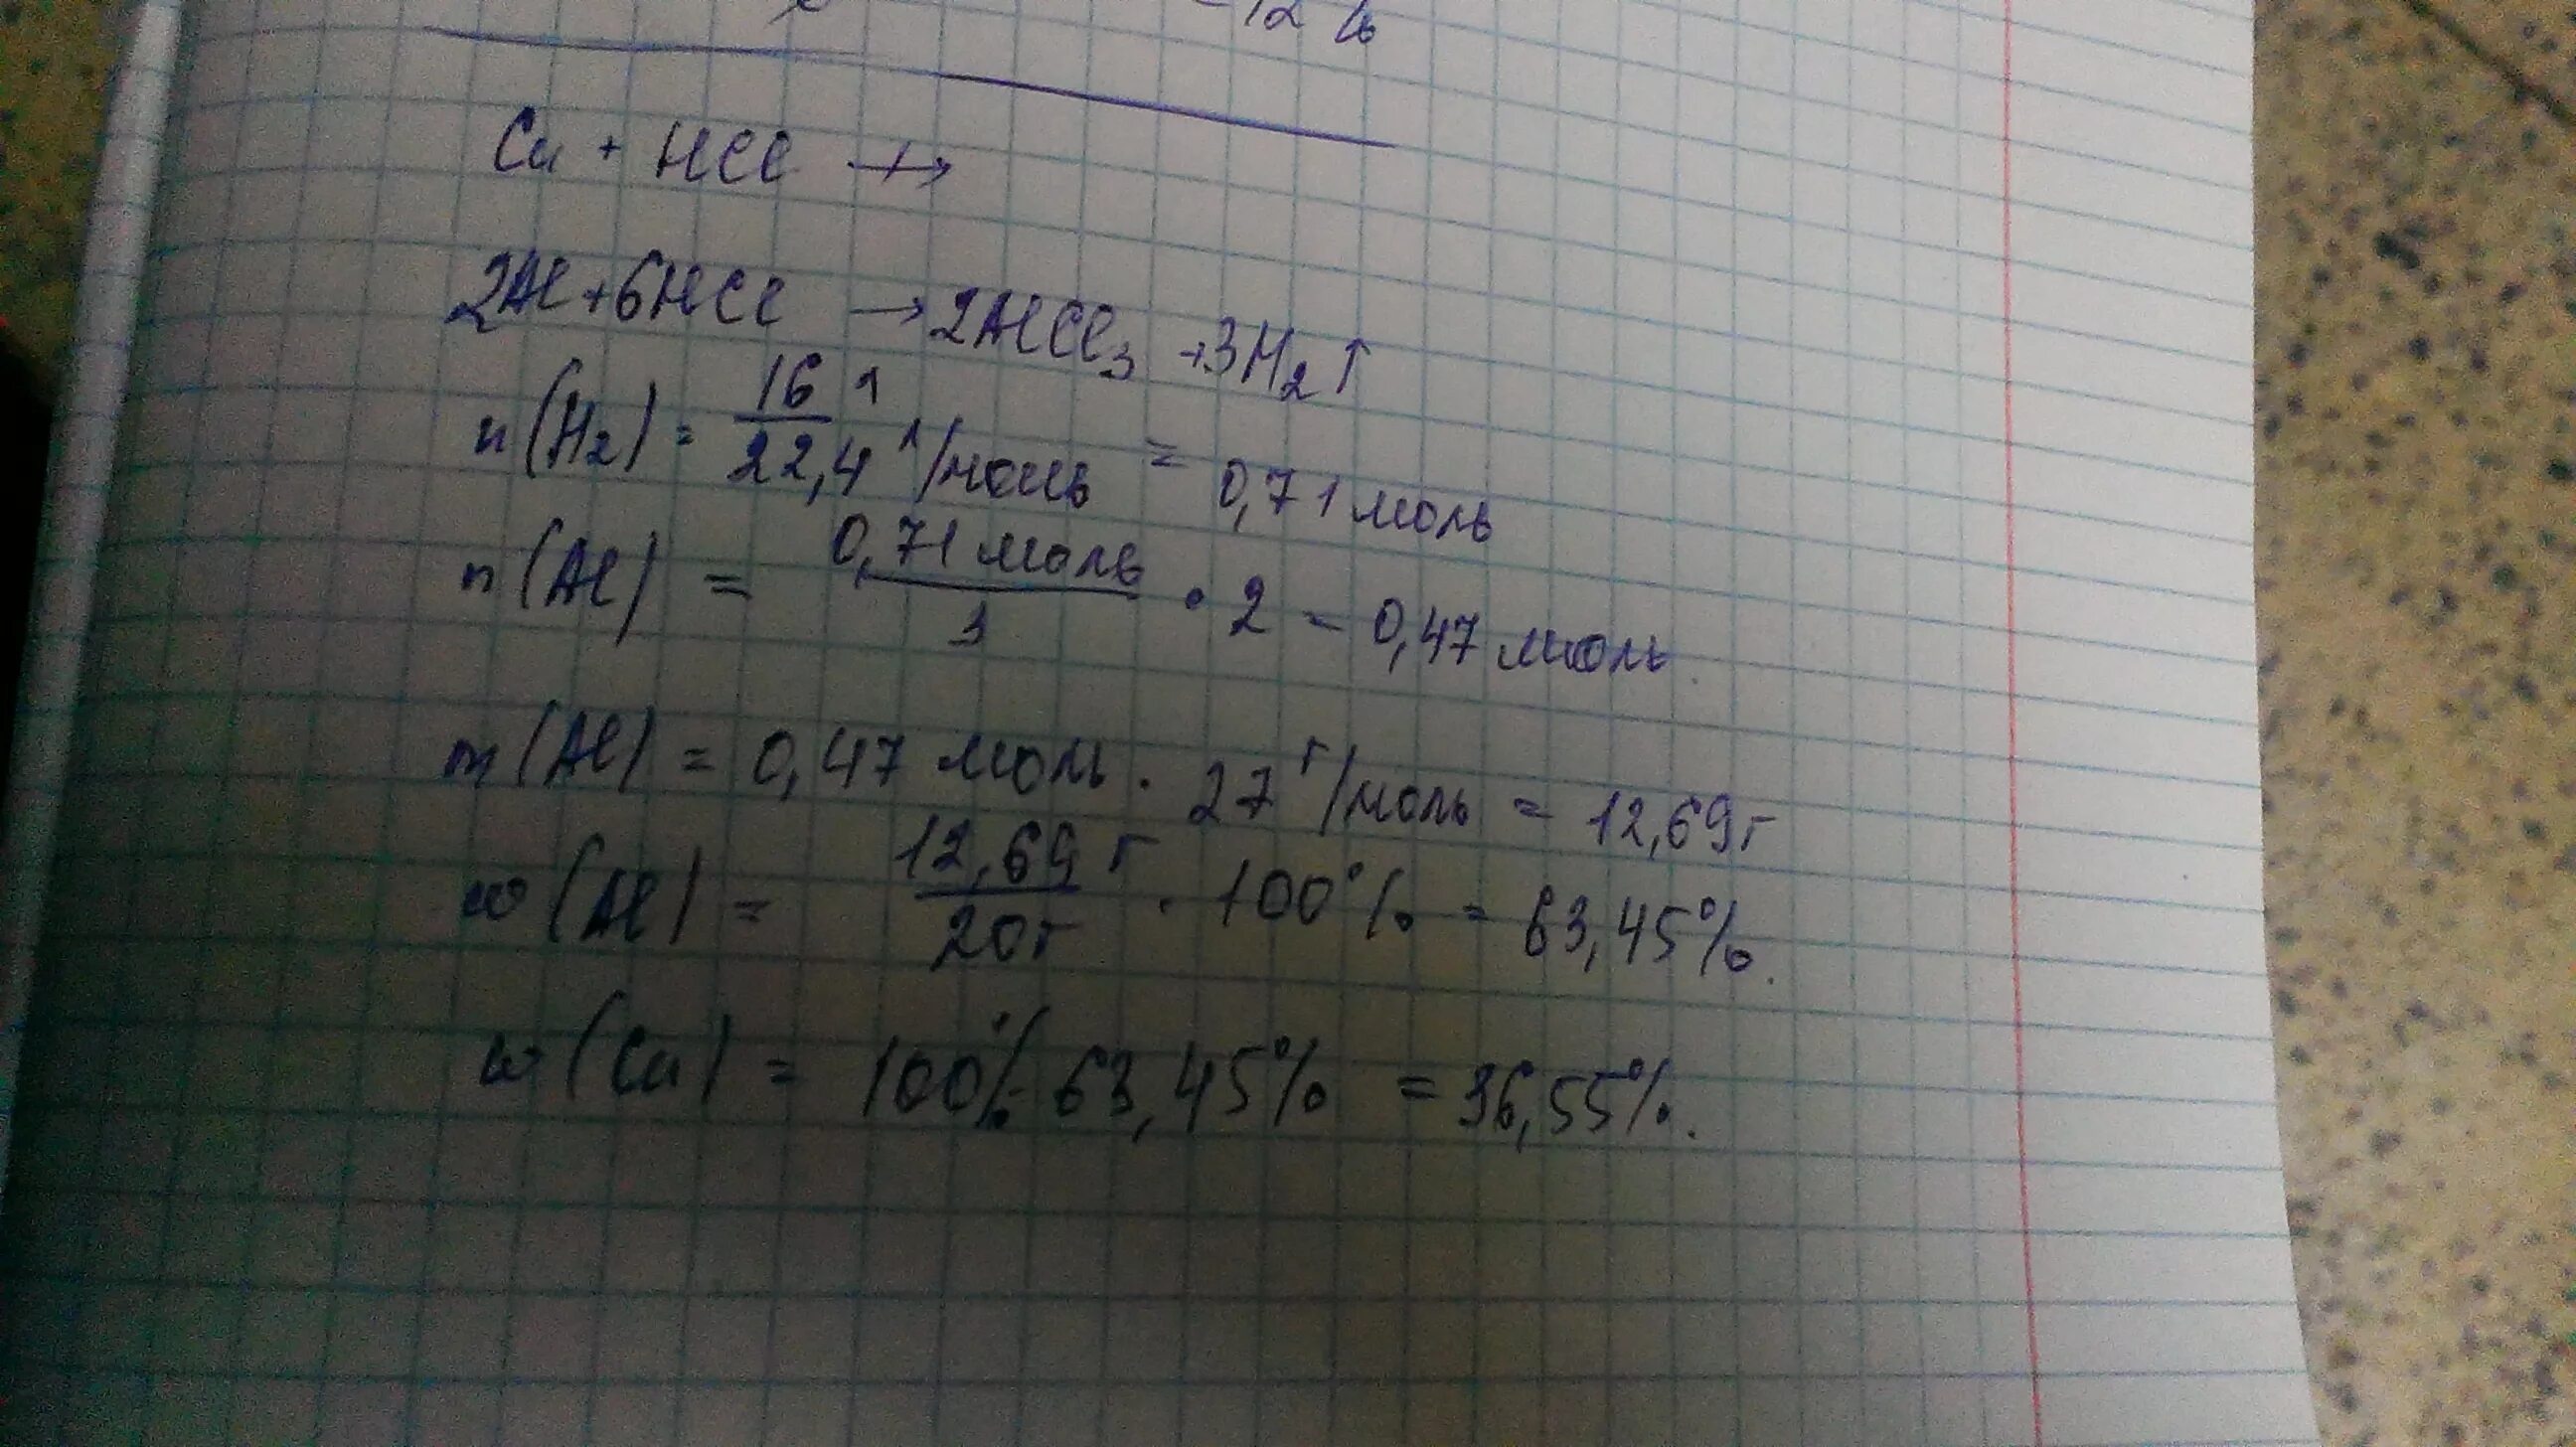 12 
Cu + HCl ↛
2Al + 6HCl → 2AlCl₃ + 3H₂↑
n(H₂) = 16 л / 22,4 л/моль = 0,71 моль
n(Al) = 0,71 моль / 3 · 2 = 0,47 моль
m(Al) = 0,47 моль · 27 г/моль = 12,69г
w(Al) = 12,69 г / 20г · 100% = 63,45%.
w(Cu) = 100% - 63,45% = 36,55%.